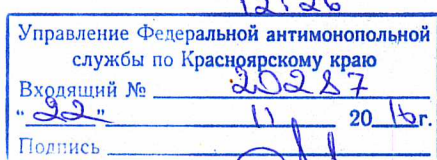 12126
Управление Федеральной антимонопольной
службы по Красноярскому краю
Входящий № 20287
"22" 11 2016г.
Подпись